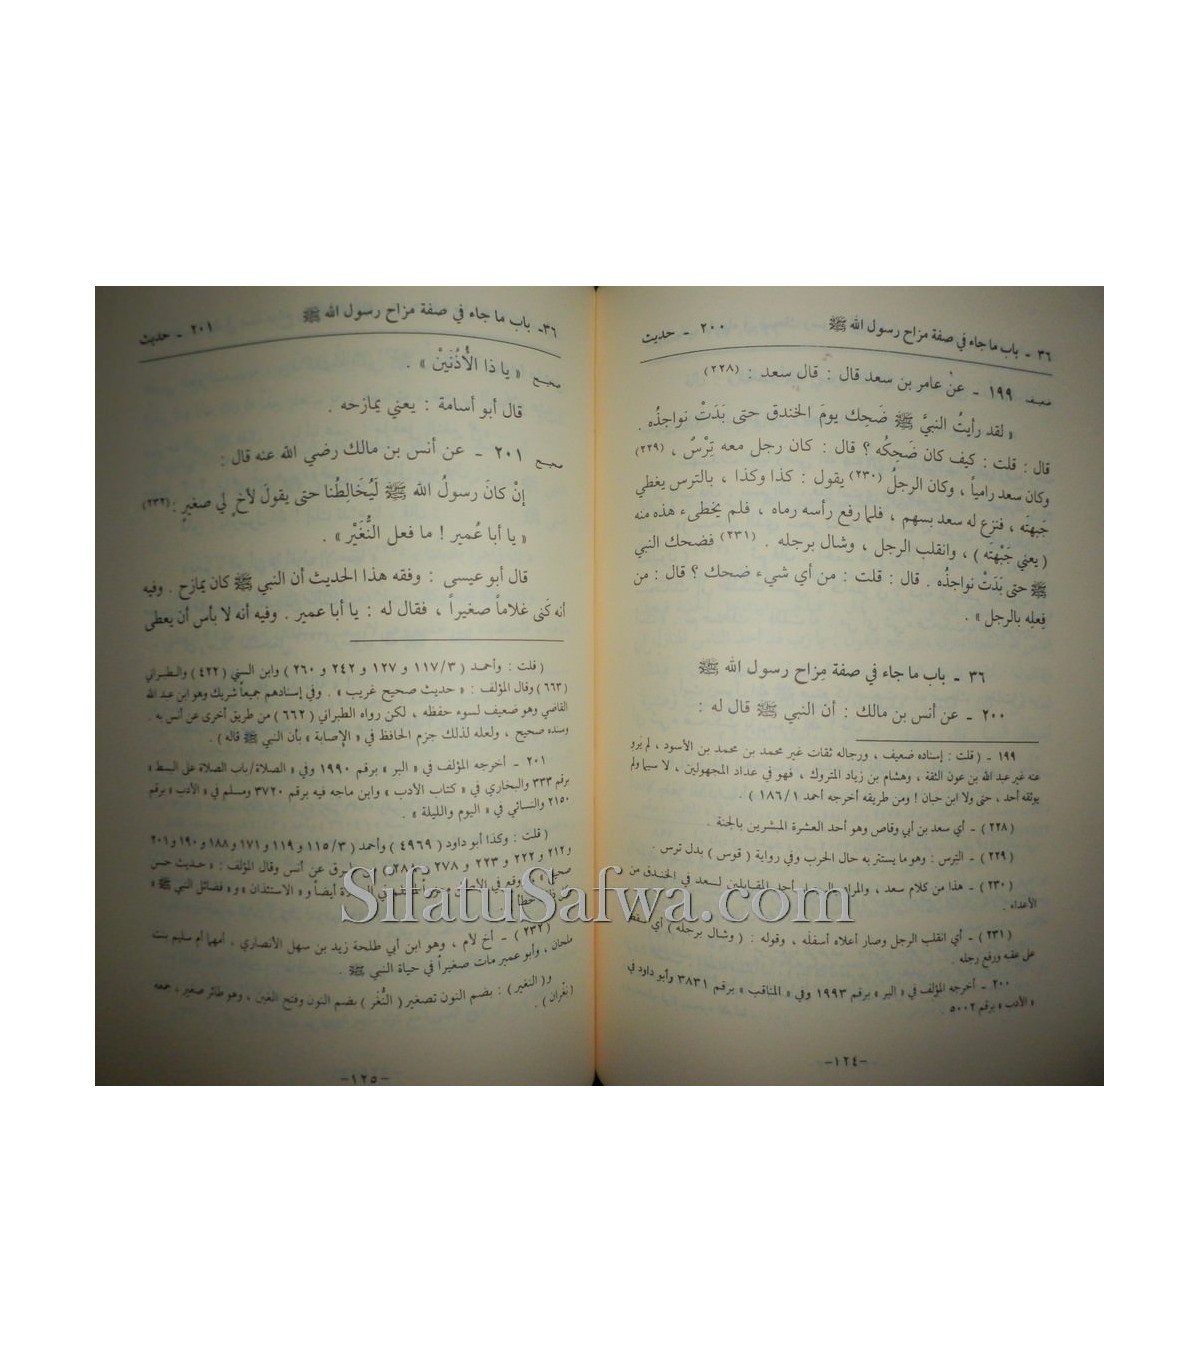 ٣٦ - باب ما جاء في صفة مزاح رسول الله ﷺ ٢٠٠ - حديث
ضعيف ١٩٩ - عنْ عامر بن سعد قال : قال سعد : (٢٢٨)
« لقد رأيتُ النبيَّ ﷺ ضَحِك يومَ الخندق حتى بَدَتْ نواجذُه .
قال : قلت : كيف كان ضَحِكُه ؟ قال : كان رجل معه تِرْسٌ ، (٢٢٩)
وكان سعد رامياً ، وكان الرجلُ (٢٣٠) يقول : كذا وكذا ، بالترس يغطي
جَبهتَه ، فنزع له سعد بسهم ، فلما رفع رأسه رماه ، فلم يخطىء هذه منه
( يعني جَبْهتَه ) ، وانقلب الرجل ، وشال برجله . (٢٣١) فضحك النبي
ﷺ حتى بَدَتْ نواجذُه . قال : قلت : من أي شيء ضحك ؟ قال : من
فِعلِه بالرجل » .
٣٦ - باب ما جاء في صفة مِزاح رسول الله ﷺ
٢٠٠ - عن أنس بن مالك : أن النبي ﷺ قال له :
١٩٩ - ( قلت : إسناده ضعيف ، ورجاله ثقات غير محمد بن محمد بن الأسود ، لم يَروِ
عنه غير عبد الله بن عون الثقة ، وهشام بن زياد المتروك ، فهو في عداد المجهولين ، لا سيما ولم
يوثقه أحد ، حتى ولا ابن حبان ! ومن طريقه أخرجه أحمد ١٨٦/١ ) .
(٢٢٨) - أي سعد بن أبي وقاص وهو أحد العشرة المبشرين بالجنة .
(٢٢٩) - التِرس : وهو ما يستتر به حال الحرب وفي رواية ( قوس ) بدل ترس .
(٢٣٠) - هذا من كلام سعد ، والمراد بالرجل أحد المقابلين لسعد في الخندق من
الأعداء .
(٢٣١) - أي انقلب الرجل وصار أعلاه أسفلَه ، وقوله : ( وشال برجله ) أي سقط
على عقبه ورفع رجله .
٢٠٠ - أخرجه المؤلف في « البر » برقم ١٩٩٣ وفي « المناقب » برقم ٣٨٣١ وأبو داود في
« الأدب » برقم ٥٠٠٢ .
-١٢٤-
٣٦- باب ما جاء في صفة مزاح رسول الله ﷺ ٢٠١ - حديث
صحيح « يا ذا الأُذُنَينْ » .
قال أبو أسامة : يعني يمازحه .
صحيح ٢٠١ - عن أنس بن مالك رضي الله عنه قال :
إنْ كانَ رسولُ الله ﷺ لَيُخَالِطُنا حتى يقولَ لأخٍ لي صغيرٍ : (٢٣٢)
« يا أبا عُمير ! ما فعل النُّغَيْر » .
قال أبو عيسى : وفقه هذا الحديث أن النبي ﷺ كان يمازح . وفيه
أنه كَنى غلاماً صغيراً ، فقال له : يا أبا عمير . وفيه أنه لا بأس أن يعطى
( قلت : وأحمد ( ١١٧/٣ و ١٢٧ و ٢٤٢ و ٢٦٠ ) وابن السني ( ٤٢٢ ) والطبراني
(٦٦٣) وقال المؤلف : « حديث صحيح غريب » . وفي إسنادهم جميعاً شريك وهو ابن عبد الله
القاضي وهو ضعيف لسوء حفظه ، لكن رواه الطبراني ( ٦٦٢ ) من طريق أخرى عن أنس به .
وسنده صحيح ، ولعله لذلك جزم الحافظ في « الإصابة » بأن النبي ﷺ قاله ) .
٢٠١ - أخرجه المؤلف في « البر » برقم ١٩٩٠ وفي « الصلاة/باب الصلاة على البسط »
برقم ٣٣٣ والبخاري في « كتاب الأدب » وابن ماجه فيه برقم ٣٧٢٠ ومسلم في « الأدب » برقم
٢١٥٠ والنسائي في « اليوم والليلة » .
( قلت : وكذا أبو داود ( ٤٩٦٩ ) وأحمد ( ١١٥/٣ و ١١٩ و ١٧١ و ١٨٨ و ١٩٠ و ٢٠١
و ٢١٢ و ٢٢٢ و ٢٢٣ و ٢٧٨ و ٢٨٨ ) من طرق عن أنس وقال المؤلف : « حديث حسن
صحيح » أيضاً و « الاستئذان » و « فضائل النبي ﷺ »
(٢٣٢) - أخ لأم ، وهو ابن أبي طلحة زيد بن سهل الأنصاري ، أمهما أم سليم بنت
ملحان ، وأبو عمير مات صغيراً في حياة النبي ﷺ .
و( النغير ) : بضم النون تصغير ( النُّغَر ) بضم النون وفتح الغين ، وهو طائر صغير ، جمعه
( نِغْران ) .
-١٢٥-
SifatuSafwa.com